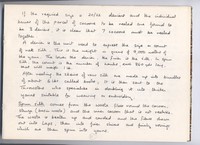 If the required size is 20/22 denier and the individual
baves of the parcel of cocoons to be reeled are found to
be 3 denier, it is clear that 7 cocoons must be reeled
together.
A denier is the unit used to express the size or count
of net silk. This is the weight in grams of 9,000 metres of
the yarn. The lower the denier, the finer is the silk. In spun
silk, the count is the number of hanks each 840 yds long
and that weigh 1 lb.
After reeling the skeins of raw silk are made up into bundles
of about 5 lb called books. It is then sent to the
Throwster who specialises in doubling it into thicker
yarns suitable for weaving or embroidery.
Spun silk comes from the waste floss round the cocoon,
strings (brins waste) and the inner cocoon that is not reelable.
The waste is broken up and carded and the fibres drawn
out into long, then into finer slivers and finally rovings
which are then spun into yarns.